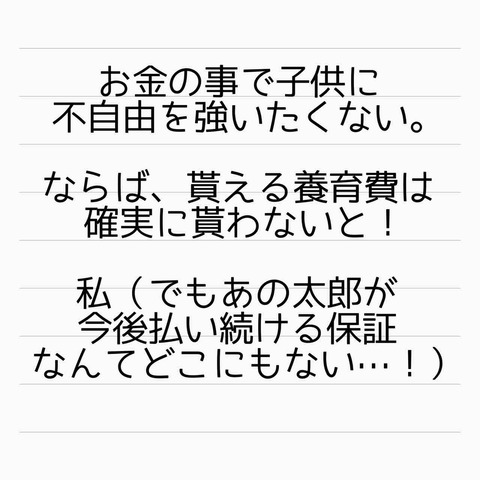 お金の事で子供に
不自由を強いたくない。
ならば、貰える養育費は
確実に貰わないと！
私（でもあの太郎が
今後払い続ける保証
なんてどこにもない…！）